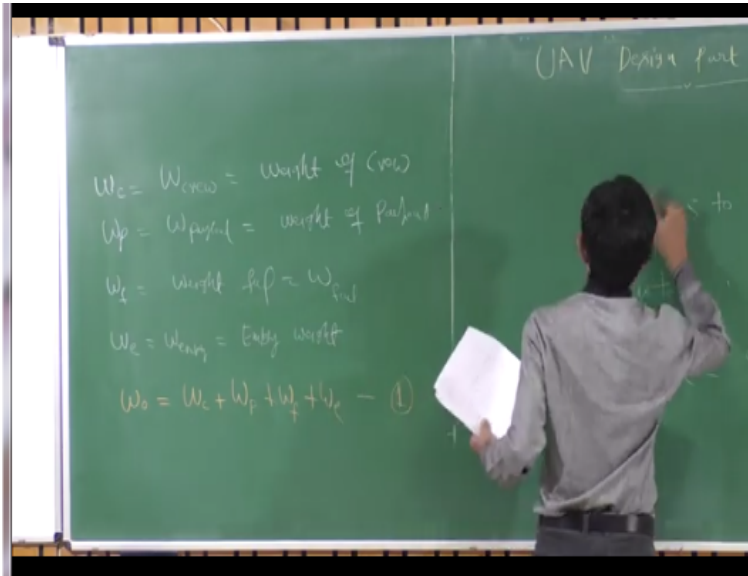 "UAV Design Part
W_c = W_crew = Weight of Crew
W_p = W_payload = weight of Payload
W_f = weight fuel = W_fuel
W_e = W_empty = Empty weight
W_o = W_c + W_p + W_f + W_e – ①
to